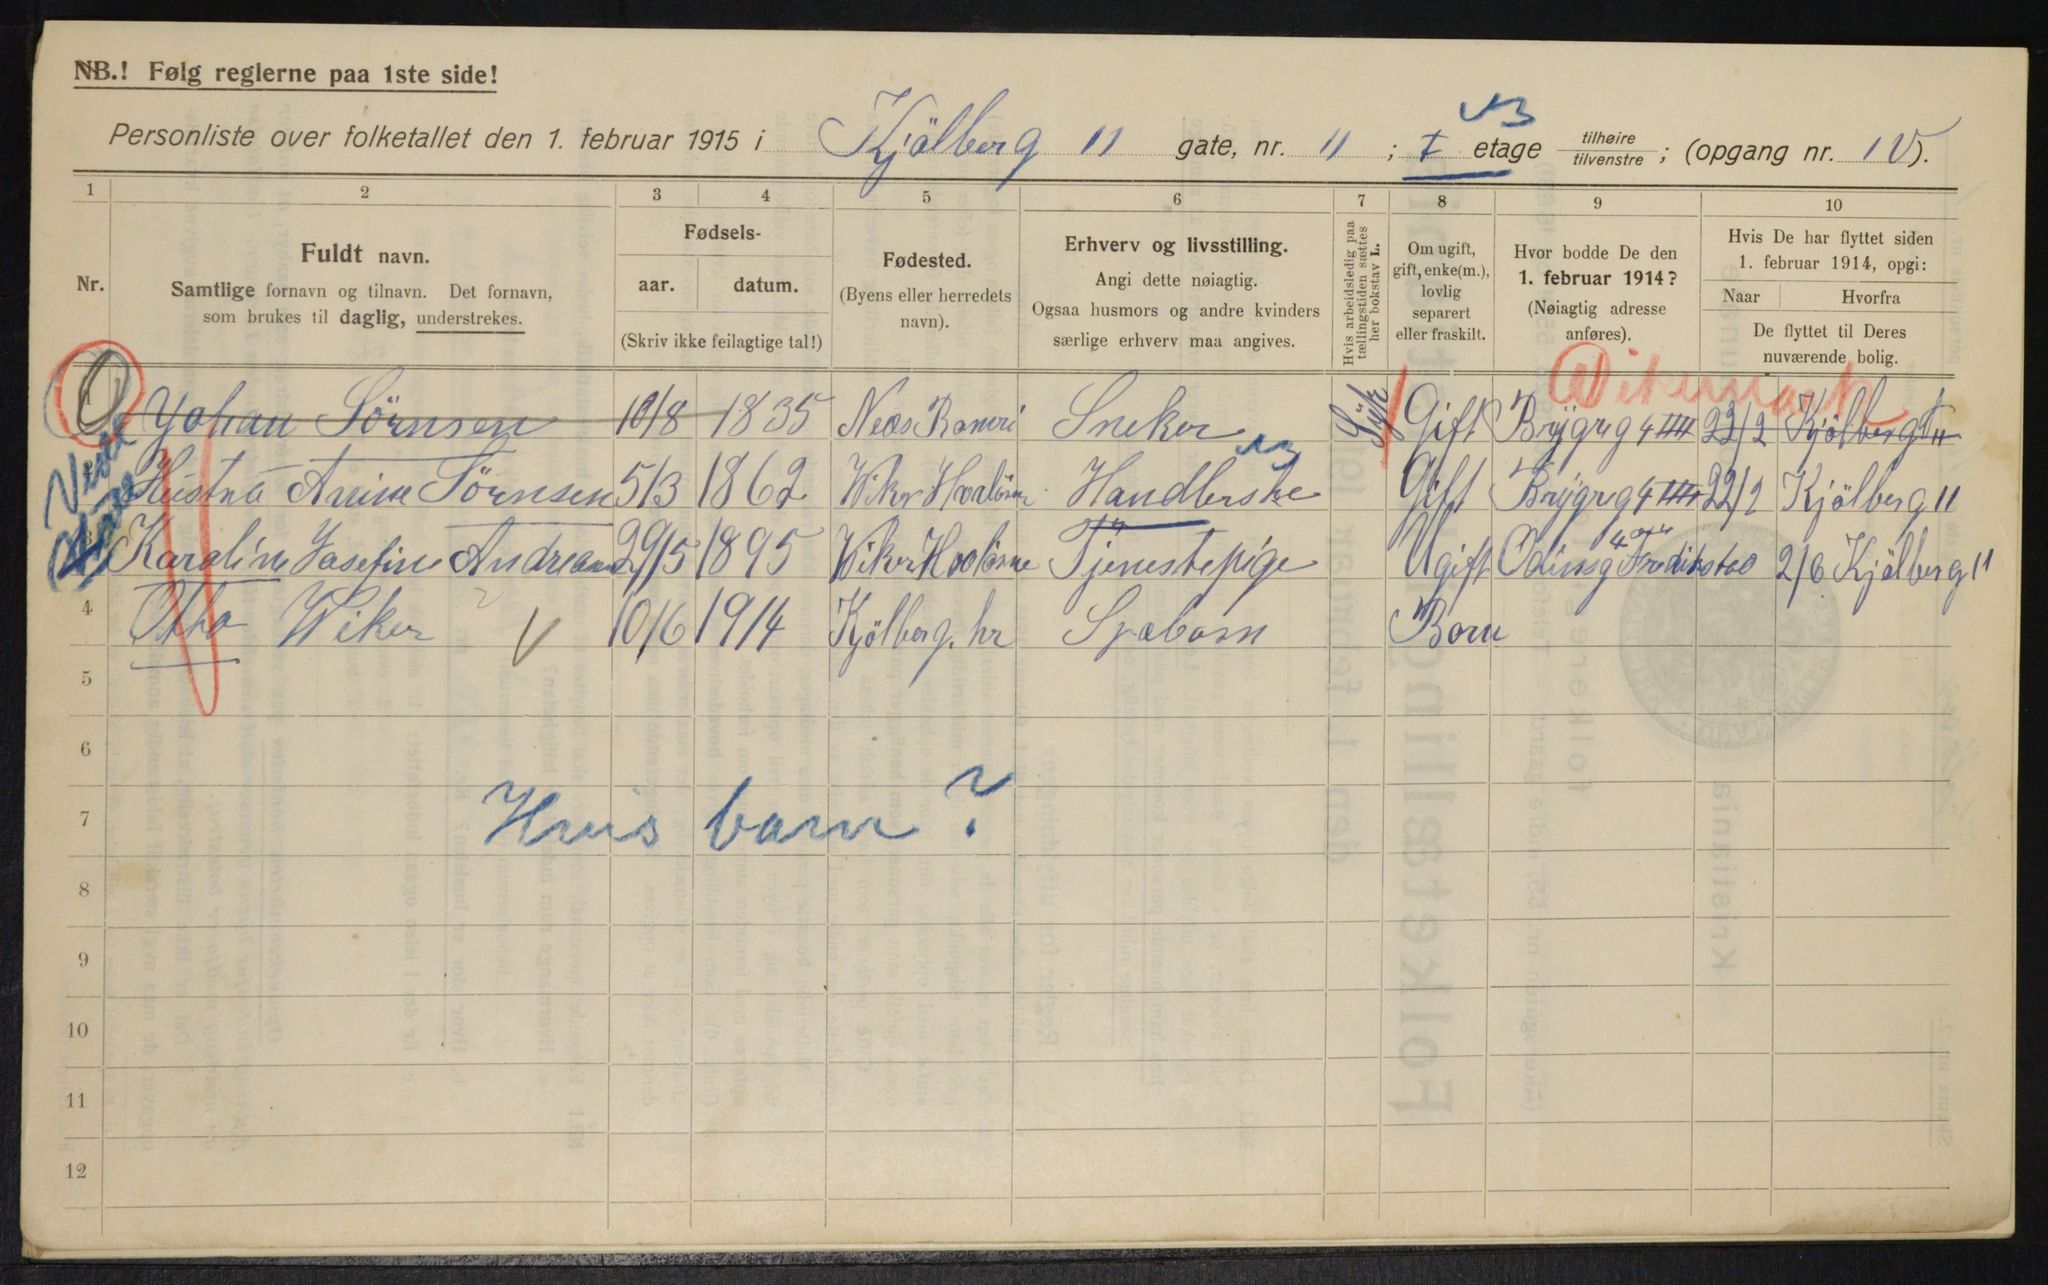 NB.! Følg reglerne paa 1ste side!
Personliste over folketallet den 1. februar 1915 i Kjølberg 11 gate, nr. 11 ; I etage tilhøire tilvenstre ; (opgang nr. 1 V).
1 2 3 4 5 6 7 8 9 10
Nr.
Fuldt navn.
Samtlige fornavn og tilnavn. Det fornavn, som brukes til daglig, understrekes.
Fødsels-
aar. datum.
(Skriv ikke feilagtige tal!)
Fødested.
(Byens eller herredets navn).
Erhverv og livsstilling.
Angi dette nøiagtig.
Ogsaa husmors og andre kvinders særlige erhverv maa angives.
Hvis arbeidsledig paa tællingstiden sættes her bokstav L.
Om ugift, gift, enke(m.), lovlig separert eller fraskilt.
Hvor bodde De den 1. februar 1914?
(Nøiagtig adresse anføres).
Hvis De har flyttet siden 1. februar 1914, opgi:
Naar Hvorfra
De flyttet til Deres nuværende bolig.
1 Johan Sörnsen 10/8 1835 Sneker Syk Gift Brÿgrg 4 IIII 22/2 Kjölberg 11
Hustna Anine Sörnsen 5/3 1862 Wiker Handlerske Gift Brÿgrg 4 IIII 22/2 Kjölberg 11
3 Karoline Josefine Andrean 29/5 1895 Wiker Tjenestepige Ugift Odinsg 4 Fredikstad 2/6 Kjölberg 11
4 Otho Wiker 10/6 1914 Kjölberg. Spæbarn Barn
5
6
7 Hvis barn ?
8
9
10
11
12